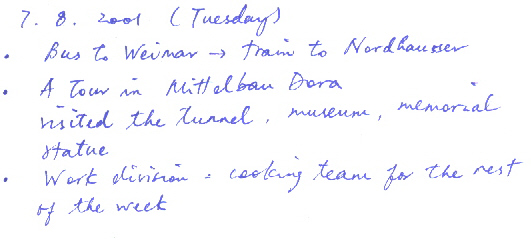 7. 8. 2001 (Tuesday)
• Bus to Weimar → train to Nordhausser
• A Tour in Mittelbau Dora
visited the tunnel, museum, memorial
statue
• Work division : cooking team for the rest
of the week